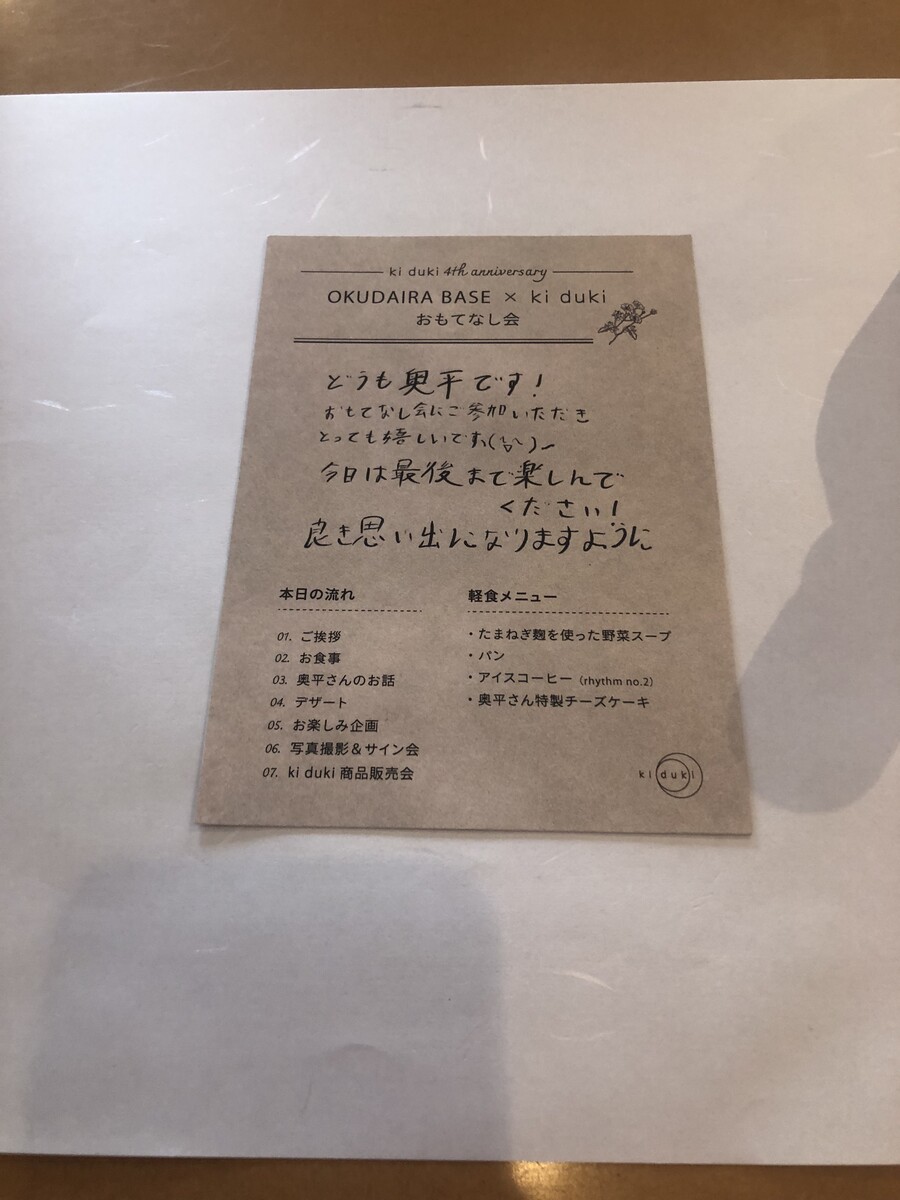 ki duki 4th anniversary
OKUDAIRA BASE × ki duki
おもてなし会
どうも奥平です!
おもてなし会にご参加いただき
とっても嬉しいです
今日は最後まで楽しんで
ください!
良き思い出になりますように
本日の流れ
01. ご挨拶
02. お食事
03. 奥平さんのお話
04. デザート
05. お楽しみ企画
06. 写真撮影&サイン会
07. ki duki 商品販売会
軽食メニュー
・たまねぎ麹を使った野菜スープ
・パン
・アイスコーヒー (rhythm no.2)
・奥平さん特製チーズケーキ
ki duki